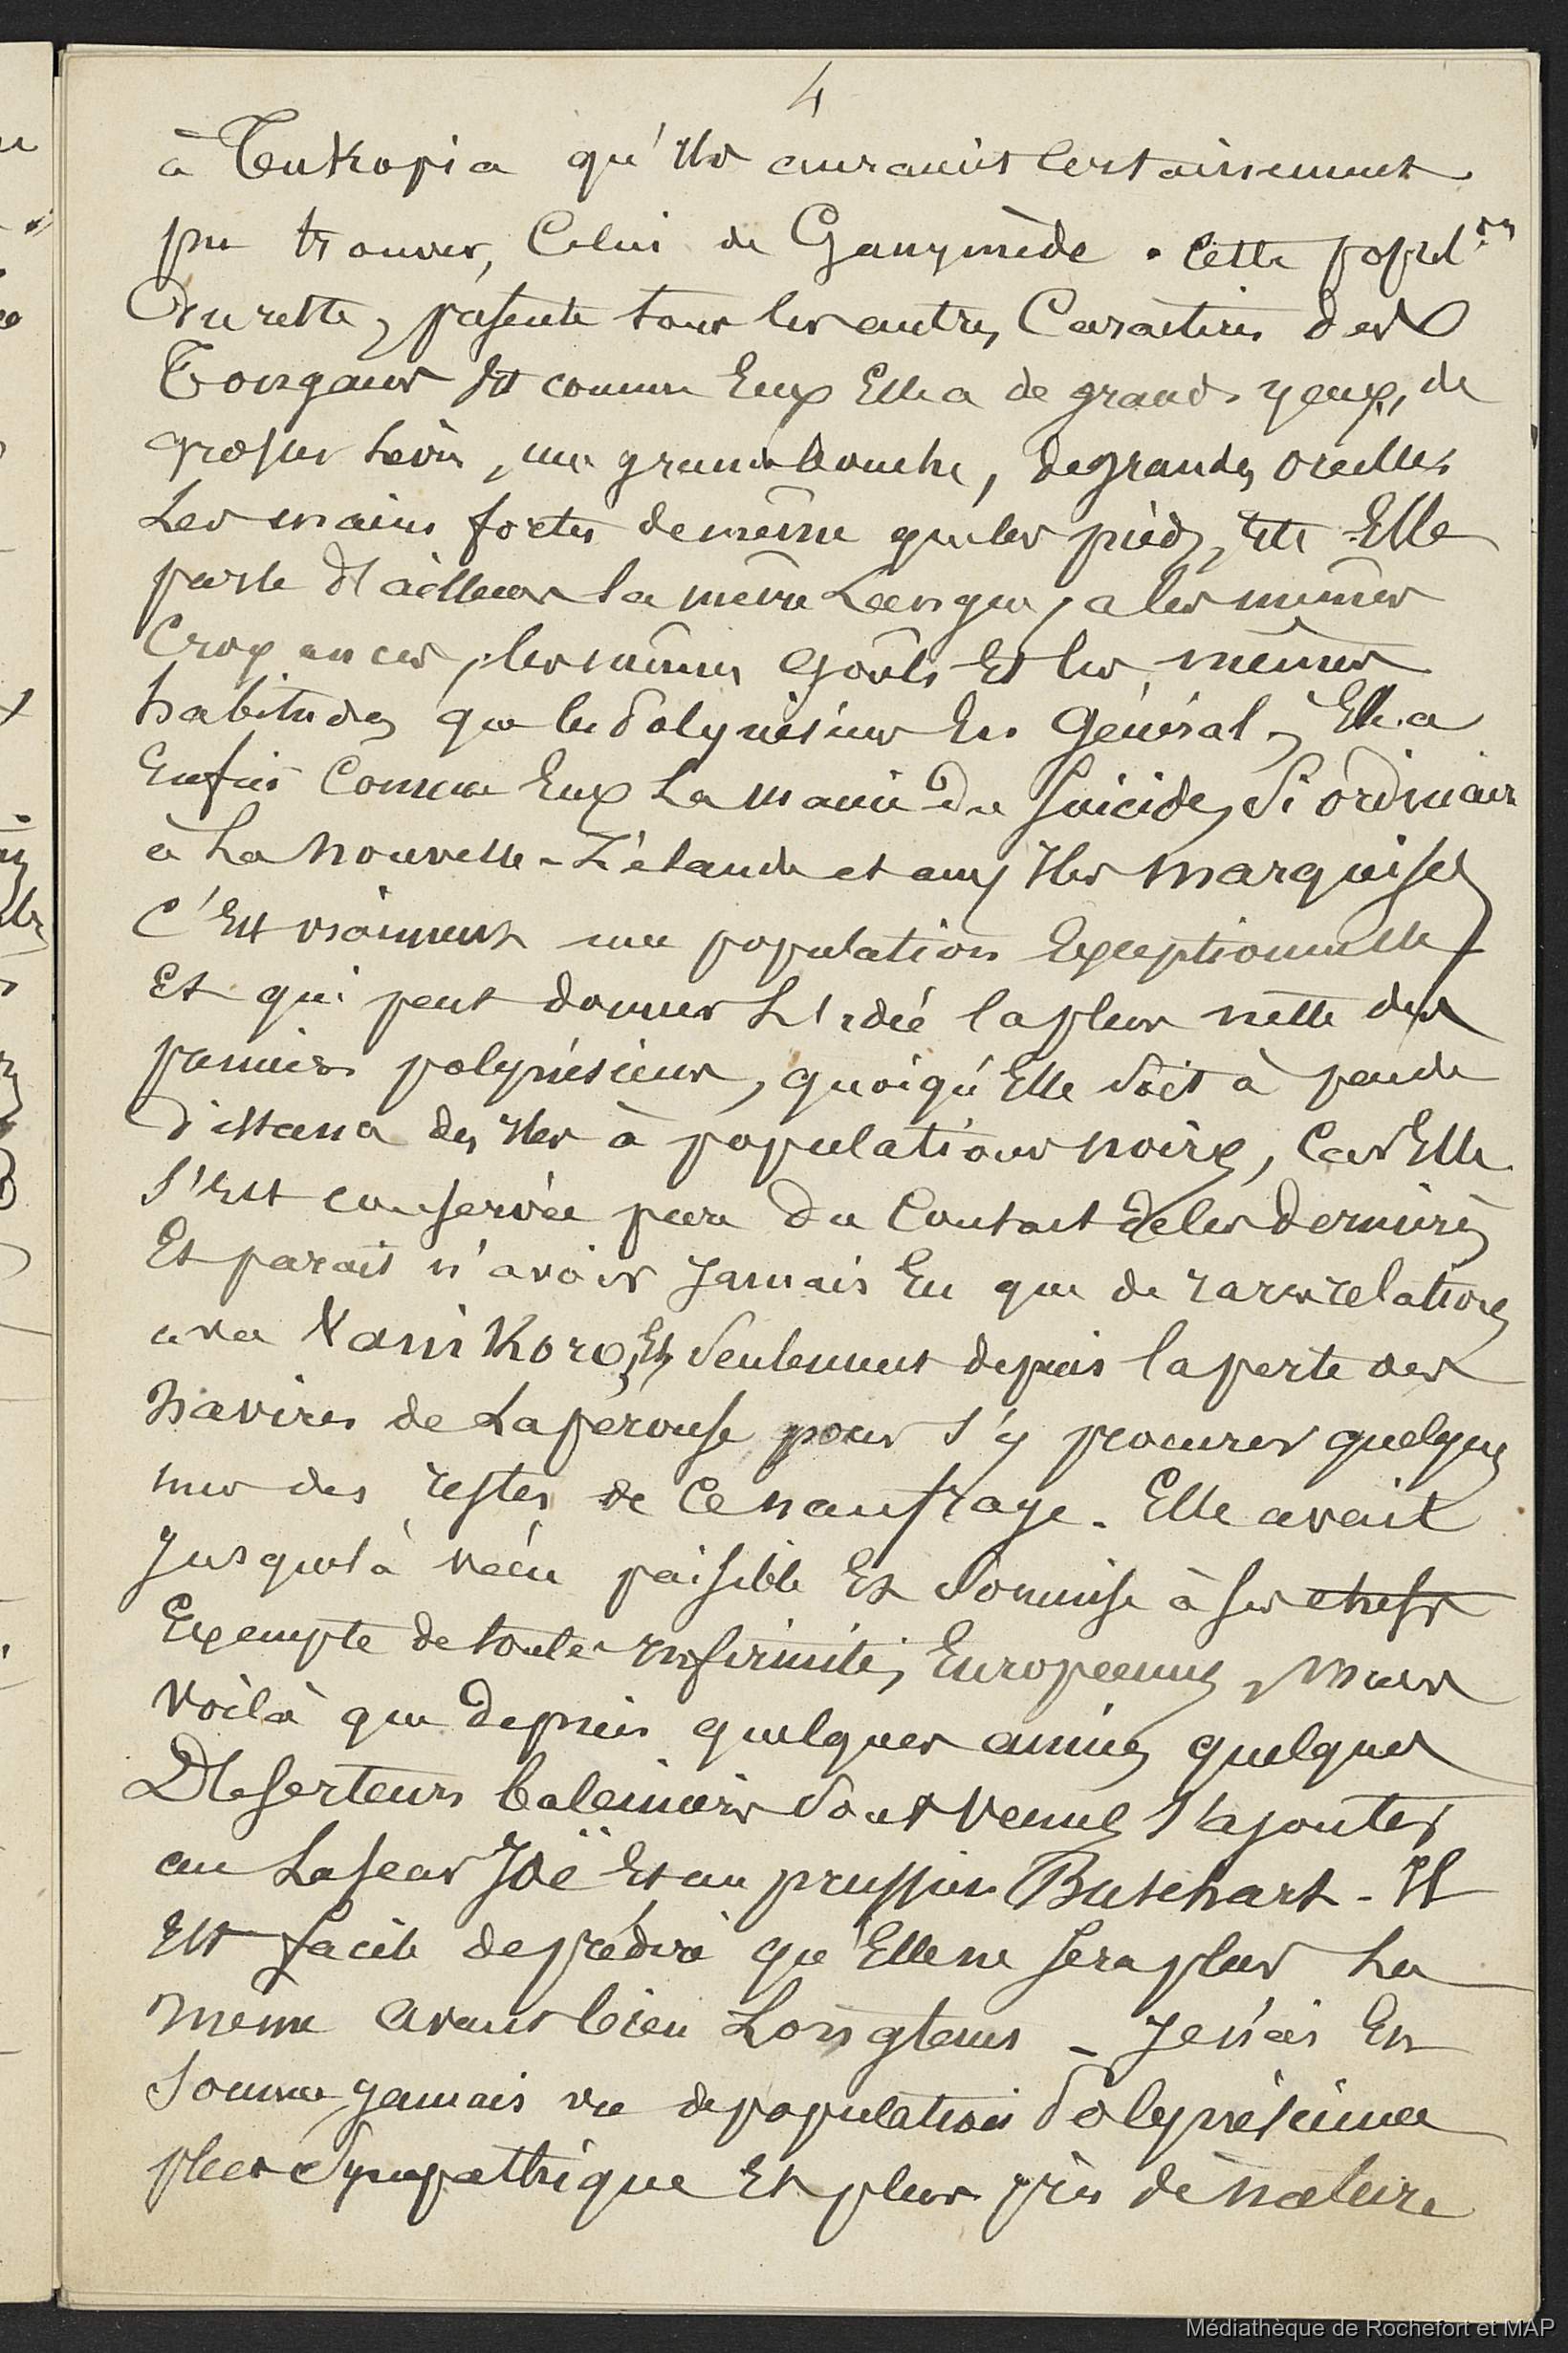 4
à Tukopia qu'ils auraient certainement
pu trouver, Celui de Ganymède. Cette popul.on
Du reste, présente tous les autres Caractères des
Tongans Et comme Eux Elle a de grands yeux, de
grosses lèvres, une grande bouche, de grandes oreilles
Les mains fortes de même que les pieds, Etc Elle
parle d'ailleurs la même Langue, a les mêmes
Croyances, les mêmes Goûts Et les mêmes
habitudes que les Polynésiens En Général, Elle a
Enfin Comme Eux La manie du Suicide, Si ordinaire
à La Nouvelle-Zélande et aux Iles Marquises
C'Est vraiment une population Exceptionnelle
Et qui peut donner L'idée la plus nette des
premiers polynésiens, quoiqu'Elle Soit à peu de
Distance des Iles à populations noires, Car Elle
S'Est conservée pure du Contact de les dernières
Et parait n'avoir Jamais Eu que de rares relations
avec Vanikoro, Et Seulement depuis la perte des
Navires de Lapérouse pour s'y procurer quelques
uns des restes de Ce naufrage. Elle avait
Jusque là vécu paisible Et Soumise à ses chefs
Exempte de toutes Infirmités Européennes, Mais
Voilà que depuis quelques années quelques
Déserteurs baleiniers Sont Venus s'ajouter
au Lascar Joë Et au prussien Buschart - Il
Est facile de prédire qu'Elle ne Sera plus La
même avant bien Longtems - Je n'ai En
Somme Jamais vu de population Polynésienne
plus Sympathique Et plus près de nature
Médiathèque de Rochefort et MAP